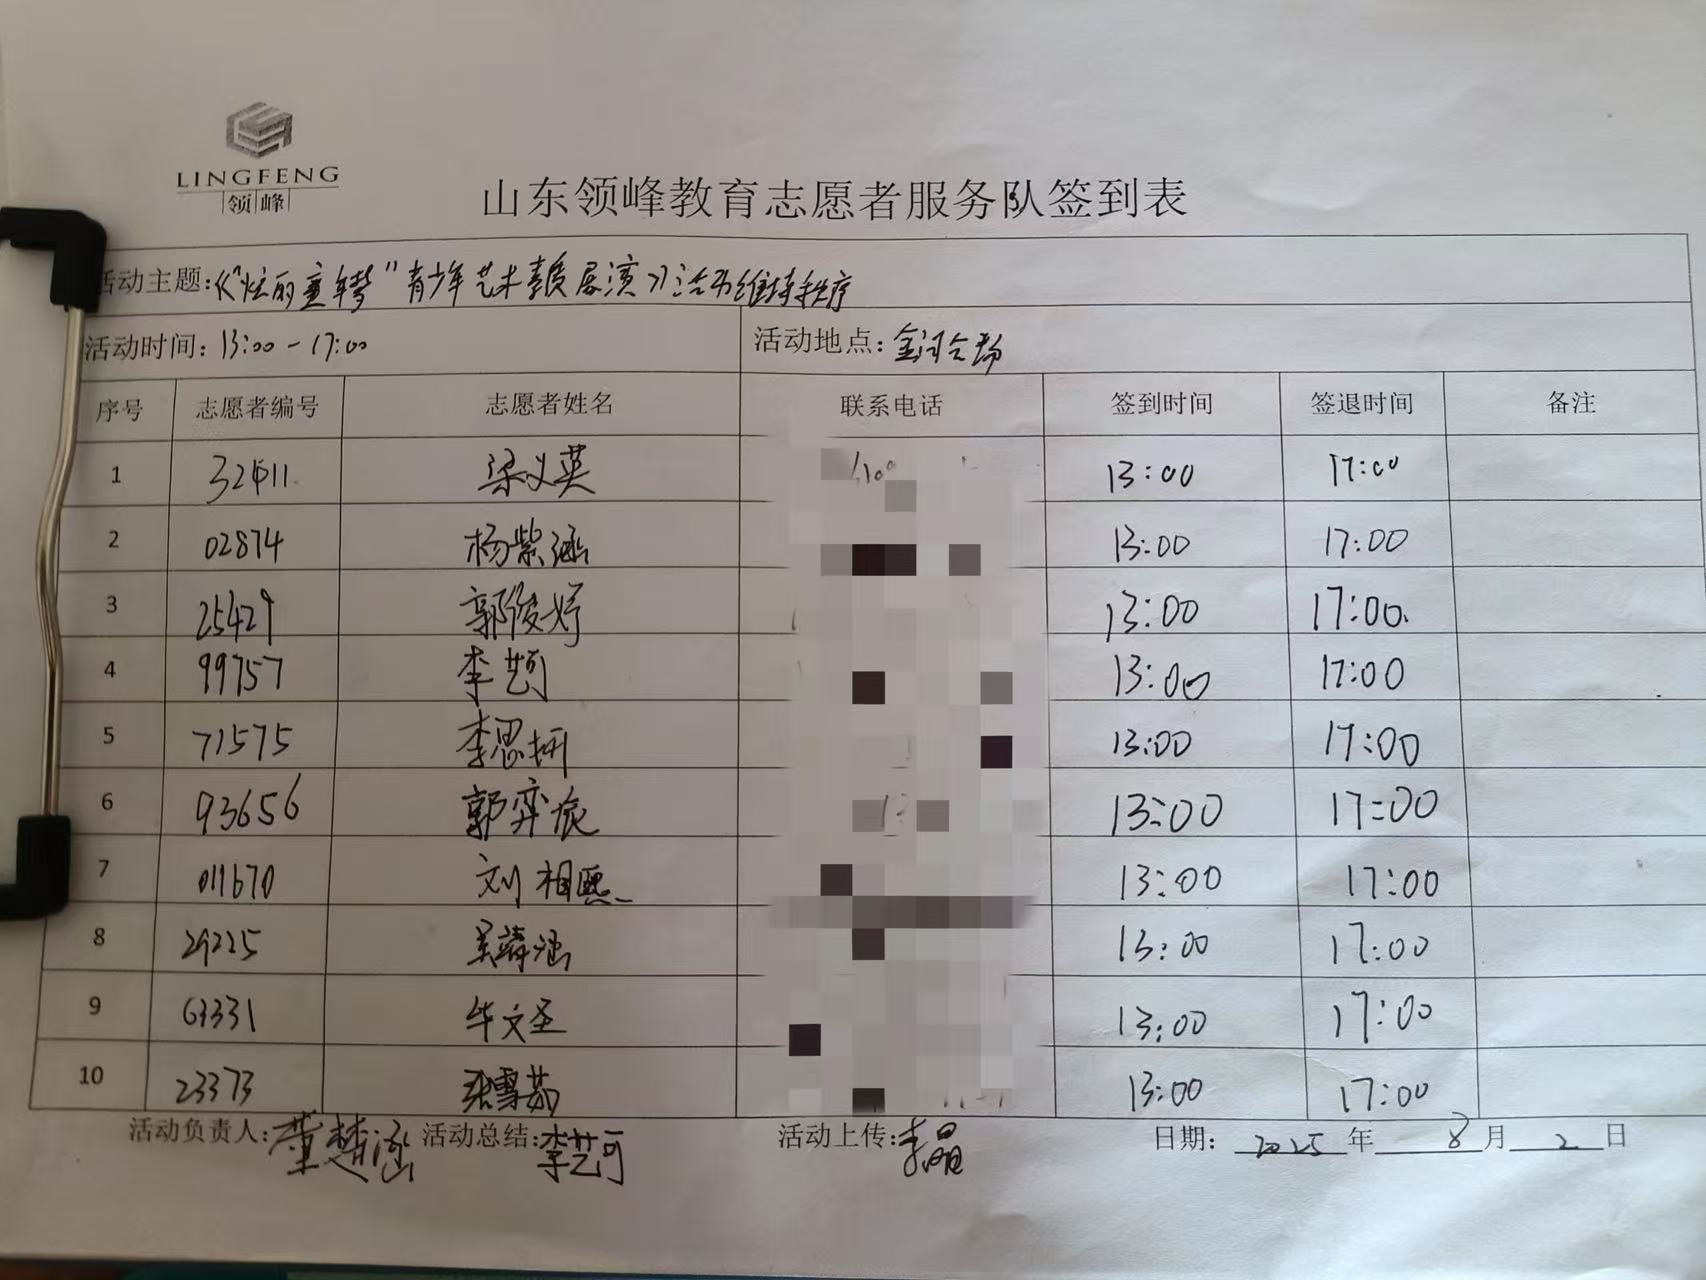 LINGFENG
领峰
山东领峰教育志愿者服务队签到表
活动主题:《“炫丽童年梦”青少年艺术素质展演》活动维持秩序
活动时间: 13:00-17:00 活动地点: 金河会场
序号 志愿者编号 志愿者姓名 联系电话 签到时间 签退时间 备注
1 梁义英 13:00 17:00
2 02874 杨紫涵 13:00 17:00
3 25429 郭俊妤 13:00 17:00
4 99757 李艺可 13:00 17:00
5 71575 李思妍 13:00 17:00
6 93656 郭弈辰 13:00 17:00
7 刘相熙 13:00 17:00
8 29225 13:00 17:00
9 63331 牛文圣 13:00 17:00
10 23373 张雪茹 13:00 17:00
活动负责人: 董楚涵 活动总结: 李艺可 活动上传: 李晶 日期: 2025 年 8 月 2 日